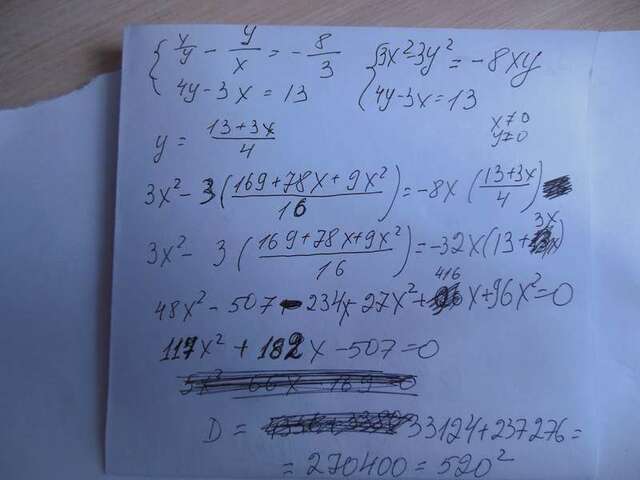 { x/y - y/x = -8/3 { 3x² - 3y² = -8xy
4y - 3x = 13 4y - 3x = 13
y = (13+3x)/4 x≠0
y≠0
3x² - 3((169+78x+9x²)/16) = -8x((13+3x)/4)
3x² - 3((169+78x+9x²)/16) = -32x(13+3x)
48x² - 507 - 234x + 27x² + 416x + 96x² = 0
117x² + 182x - 507 = 0
D = 33124 + 237276 =
= 270400 = 520²